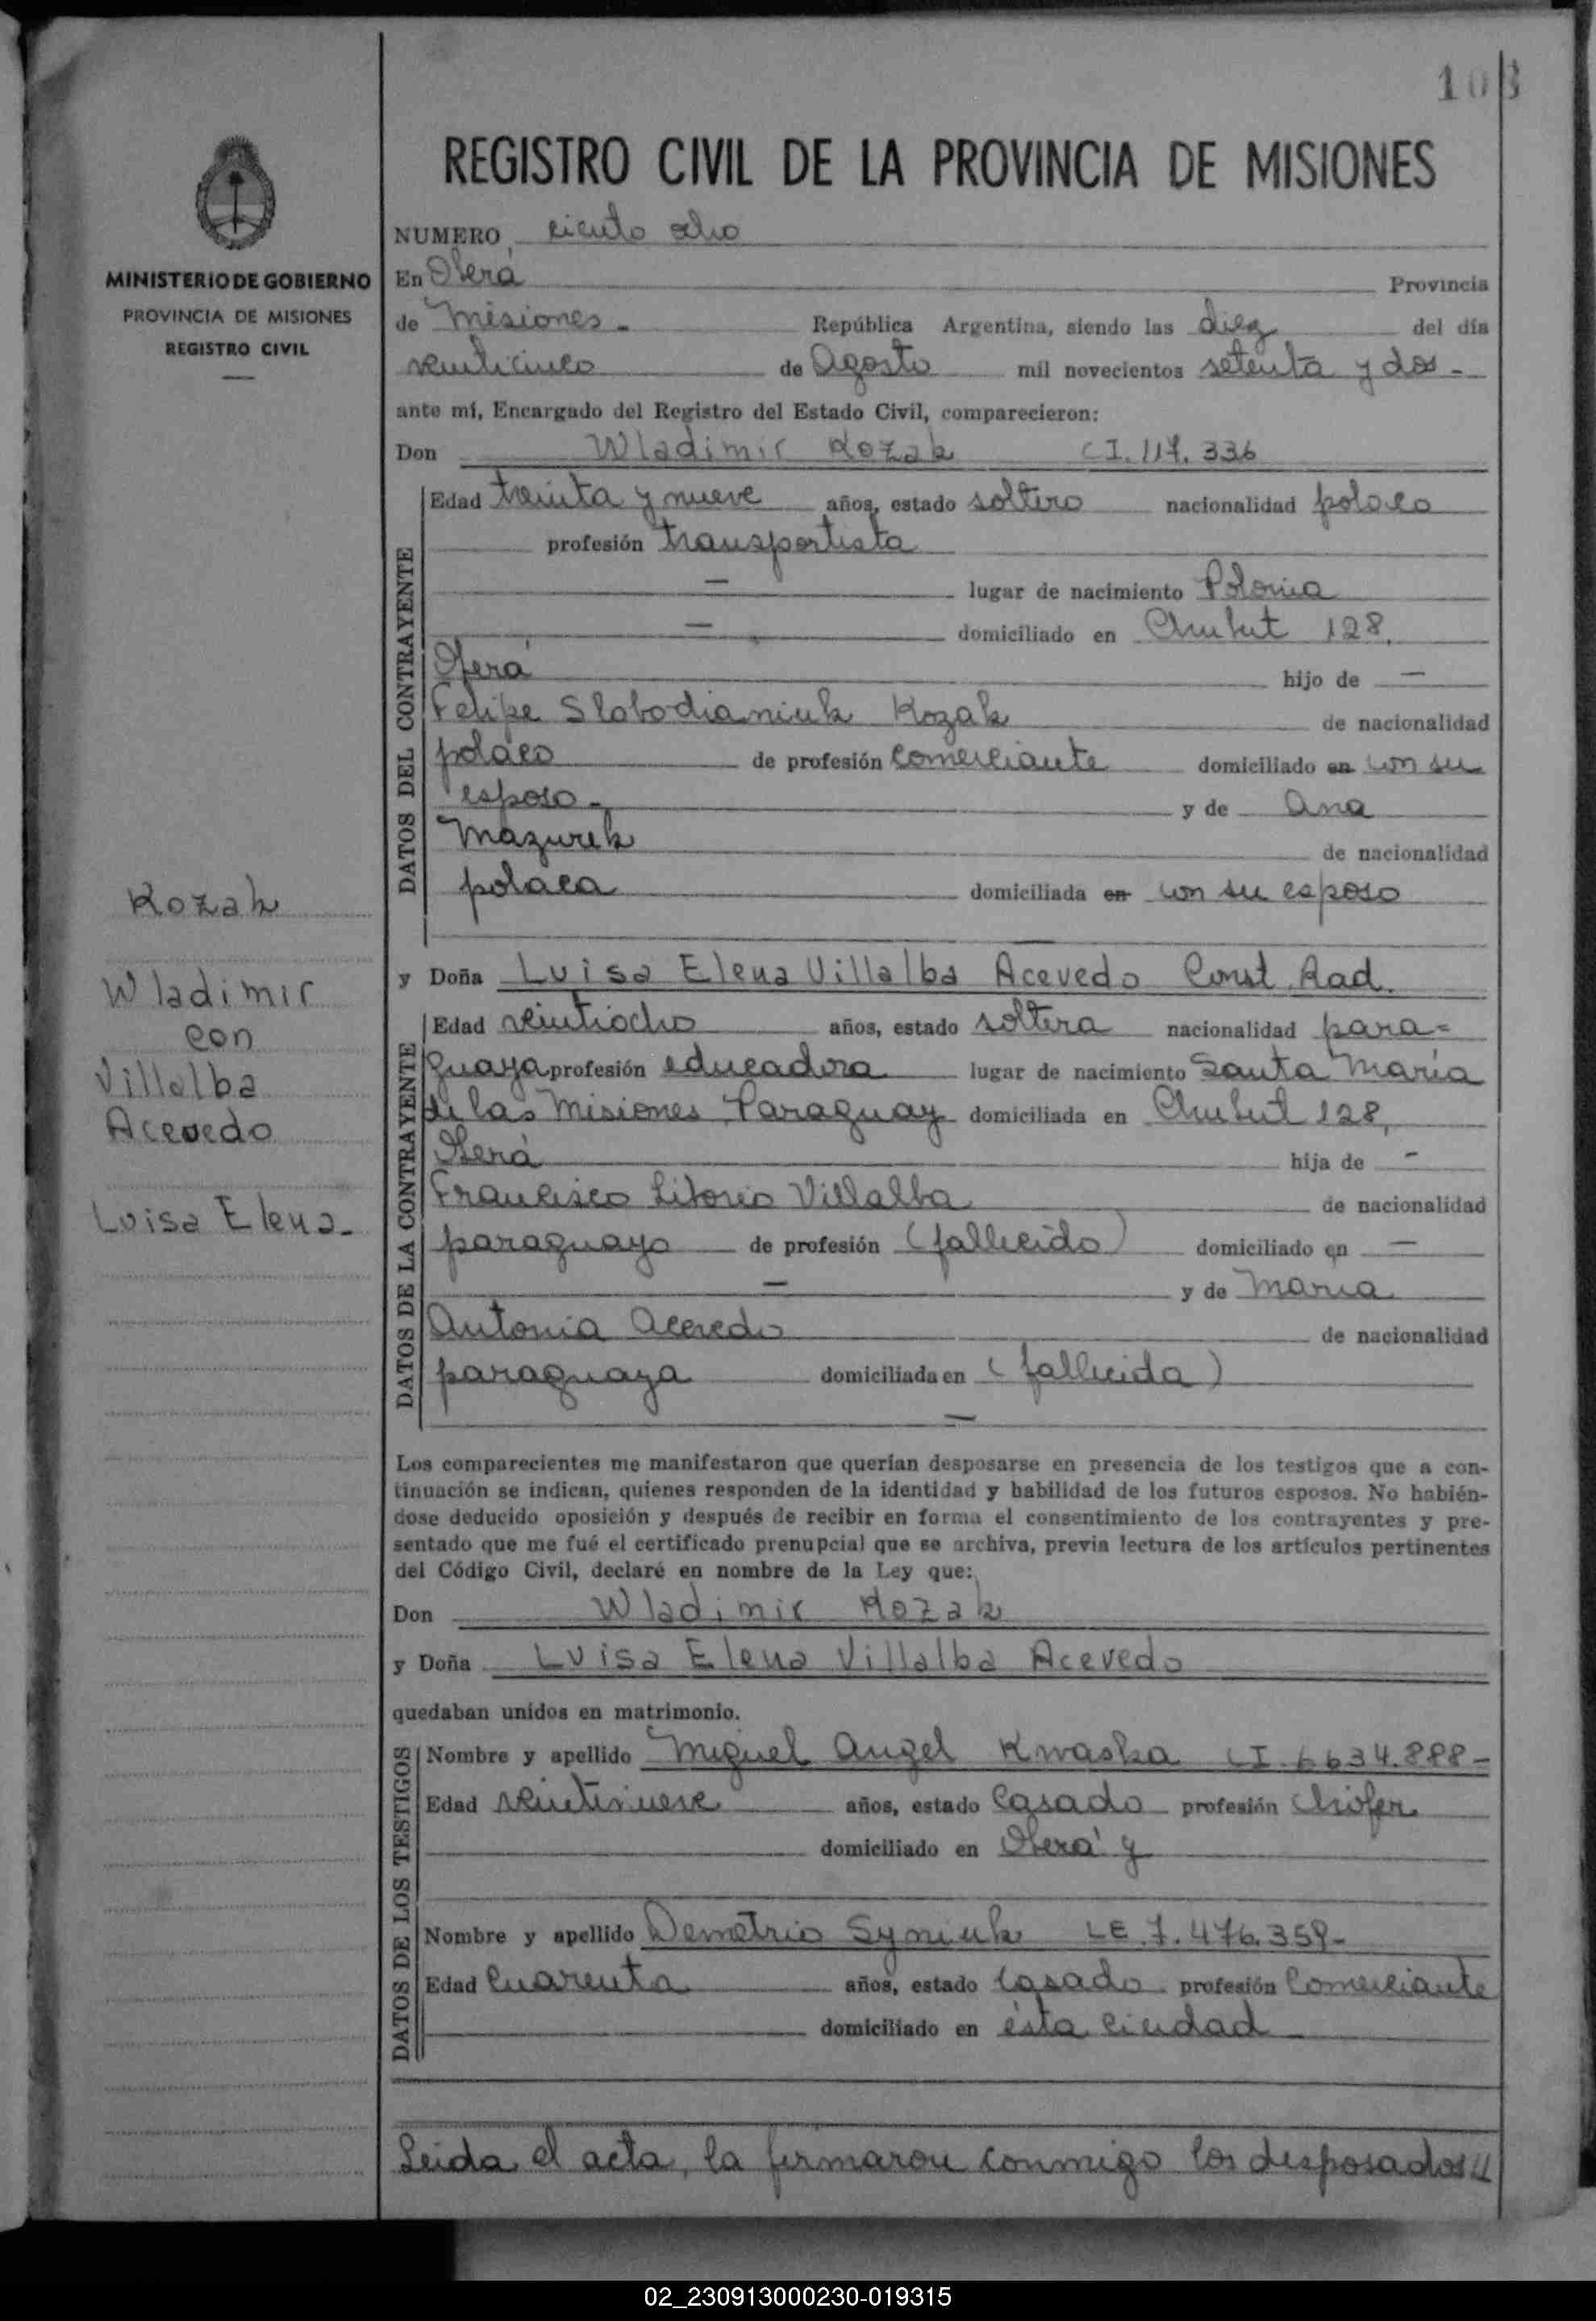 108
REGISTRO CIVIL DE LA PROVINCIA DE MISIONES
MINISTERIO DE GOBIERNO
PROVINCIA DE MISIONES
REGISTRO CIVIL
NUMERO ciento ocho
En Oberá Provincia
de Misiones.- República Argentina, siendo las diez del día
veinticinco de Agosto mil novecientos setenta y dos.-
ante mí, Encargado del Registro del Estado Civil, comparecieron:
Don Wladimir Kozak CI. 117.336
DATOS DEL CONTRAYENTE
Edad treinta y nueve años, estado soltero nacionalidad polaco
profesión transportista
— lugar de nacimiento Polonia
— domiciliado en Chubut 128,
Oberá hijo de —
Felipe Slobodianiuk Kozak de nacionalidad
polaco de profesión comerciante domiciliado en con su
esposo.- y de Ana
Mazurek de nacionalidad
polaca domiciliada en con su esposo
Kozak
Wladimir
con
Villalba
Acevedo
Luisa Elena-
y Doña Luisa Elena Villalba Acevedo Const. Rad.
DATOS DE LA CONTRAYENTE
Edad veintiocho años, estado soltera nacionalidad para=
guaya profesión educadora lugar de nacimiento Santa María
de las Misiones Paraguay domiciliada en Chubut 128,
Oberá hija de -
Francisco Villalba de nacionalidad
paraguayo de profesión (fallecido) domiciliado en —
— y de María
Antonia Acevedo de nacionalidad
paraguaya domiciliada en (fallecida)
—
Los comparecientes me manifestaron que querían desposarse en presencia de los testigos que a con-
tinuación se indican, quienes responden de la identidad y habilidad de los futuros esposos. No habién-
dose deducido oposición y después de recibir en forma el consentimiento de los contrayentes y pre-
sentado que me fué el certificado prenupcial que se archiva, previa lectura de los artículos pertinentes
del Código Civil, declaré en nombre de la Ley que:
Don Wladimir Kozak
y Doña Luisa Elena Villalba Acevedo
quedaban unidos en matrimonio.
DATOS DE LOS TESTIGOS
Nombre y apellido Miguel Angel Kwaska CI. 6634.888-
Edad veintinueve años, estado Casado profesión Chófer
domiciliado en Oberá y
Nombre y apellido Demetrio Syniuk LE. 7.476.359-
Edad Cuarenta años, estado Casado profesión Comerciante
domiciliado en ésta ciudad
Leida el acta, la firmaron conmigo los desposados//
02_230913000230-019315